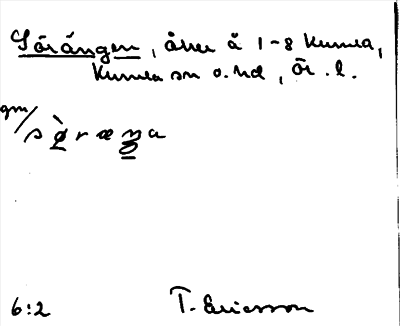 Sörängen, åker å 1-8 Kumla,
Kumla sn o. hd, Ör. l.
gm/
sø̀ræŋa
6:2 T. Ericsson